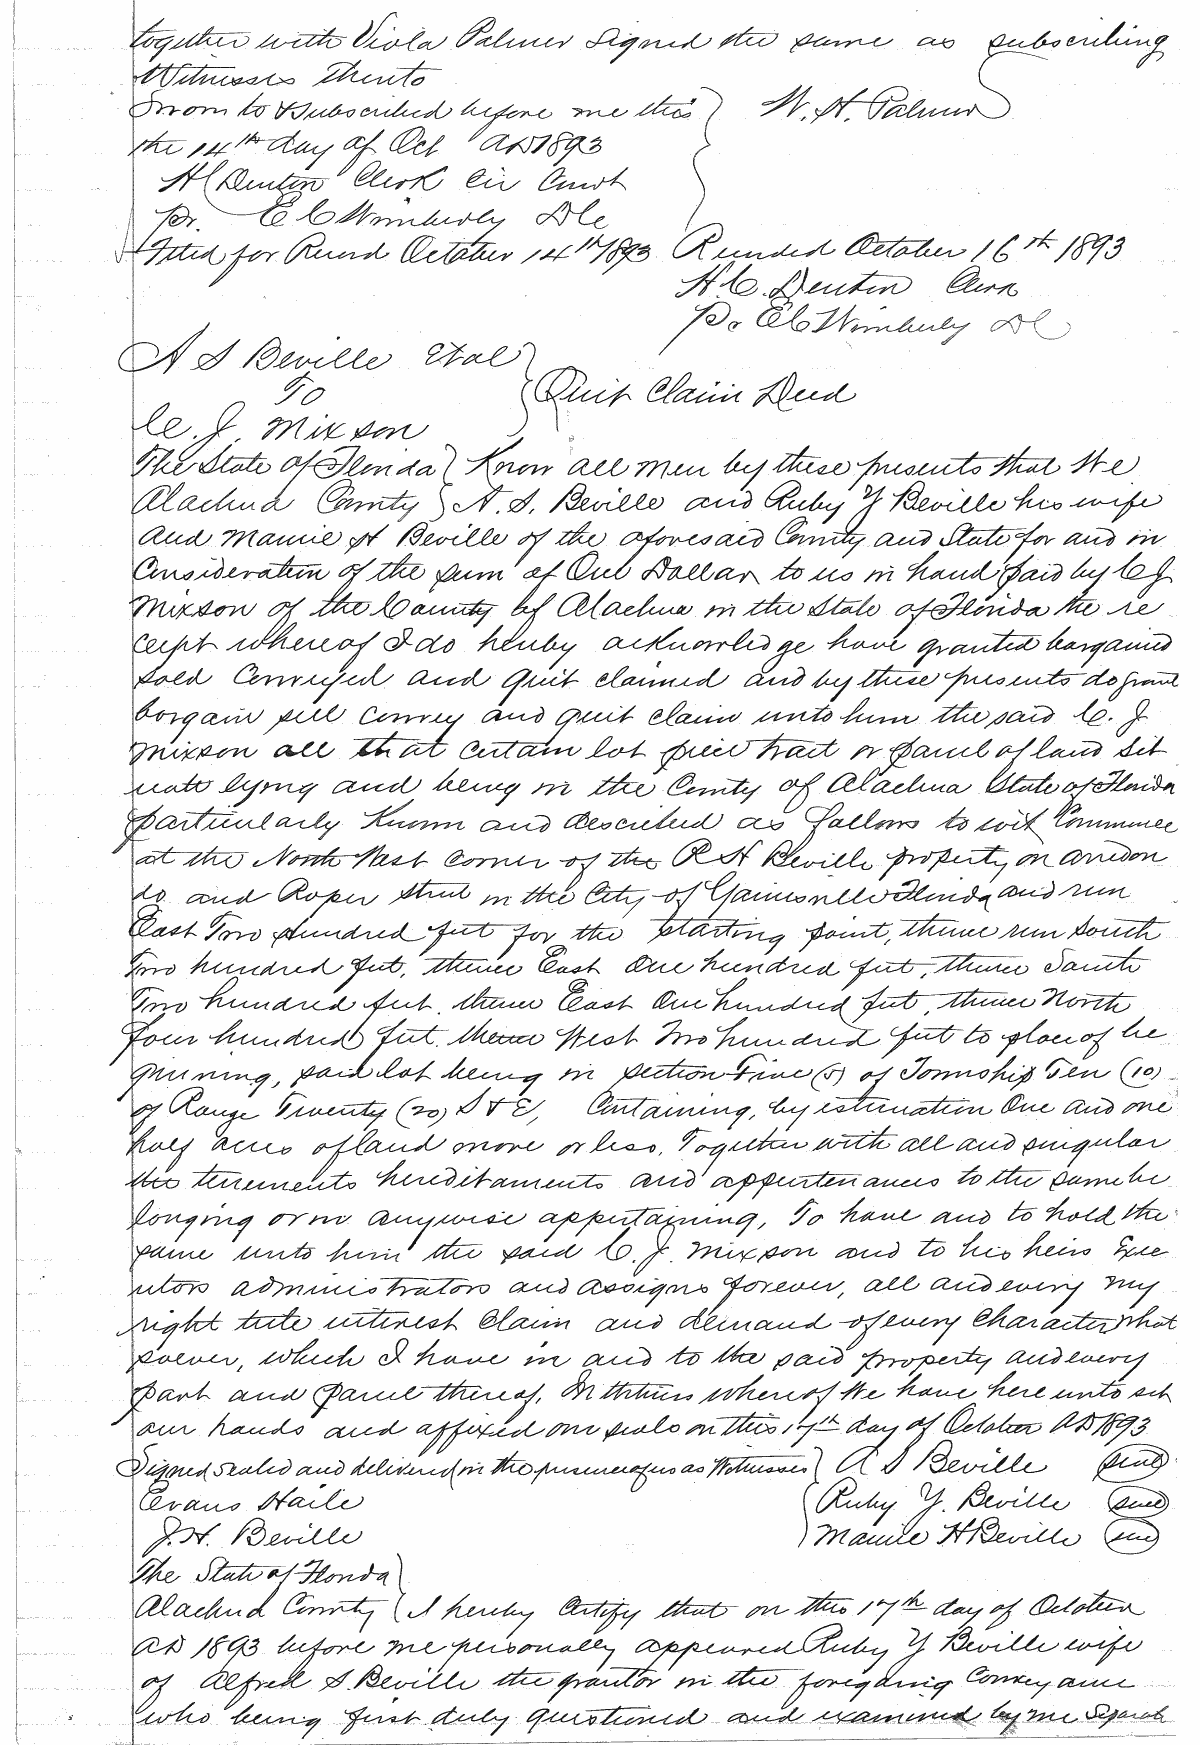 together with Viola Palmer signed the same as subscribing
Witnesses thereto
Sworn to & subscribed before me this } W. H. Palmer
the 14th day of Oct AD 1893
H C Denton Clerk Cir Court
Pr. E C Wimberly D C
Filed for Record October 14th 1893 Recorded October 16th 1893
H. C. Denton Clerk
Pr E C Wimberly D C
A S Beville Et al
To } Quit Claim Deed
C. J. Mixson
The State of Florida } Know all men by these presents that We
Alachua County } A. S. Beville and Ruby Y Beville his wife
and Mamie H Beville of the aforesaid County and State for and in
Consideration of the sum of One Dollar to us in hand paid by C J
Mixson of the County of Alachua in the State of Florida the re
ceipt whereof I do hereby acknowledge have granted bargained
sold Conveyed and quit claimed and by these presents do grant
bargain sell convey and quit claim unto him the said C. J.
Mixson all that certain lot piece tract or parcel of land sit
uate lying and being in the County of Alachua State of Florida
particularly Known and described as follows to wit Commence
at the North West corner of the R H Beville property on Arredon
do and Roper street in the City of Gainesville Florida and run
East Two Hundred feet for the starting point, thence run south
Two hundred feet, thence East One hundred feet, thence South
Two hundred feet, thence East One hundred feet, thence North
four hundred feet, thence West Two hundred feet to place of be
ginning, said lot being in section Five (5) of Township Ten (10)
of Range Twenty (20) S & E, Containing, by estimation One and one
half acres of land more or less, Together with all and singular
the tenements hereditaments and appurtenances to the same be
longing or in anywise appertaining, To have and to hold the
same unto him the said C. J. Mixson and to his heirs Exec
utors administrators and assigns forever, all and every my
right title interest Claim and demand of every Character what
soever, which I have in and to the said property and every
part and parcel thereof. In Witness whereof We have here unto set
our hands and affixed our seals on this 17th day of October AD 1893
Signed sealed and delivered in the presence of us as Witnesses } A S Beville (seal)
Evans Haile Ruby Y. Beville (seal)
J. H. Beville Mamie H Beville (seal)
The State of Florida }
Alachua County } I hereby Certify that on this 17th day of October
AD 1893 before me personally appeared Ruby Y Beville wife
of Alfred S. Beville the grantor in the foregoing Conveyance
who being first duly questioned and examined by me separate